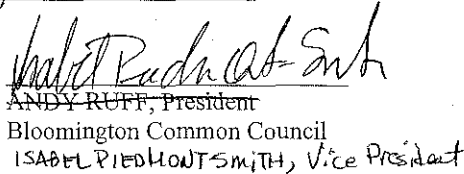 Isabel Piedmont-Smith
ANDY RUFF, President
Bloomington Common Council
ISABEL PIEDMONT-SMITH, Vice President